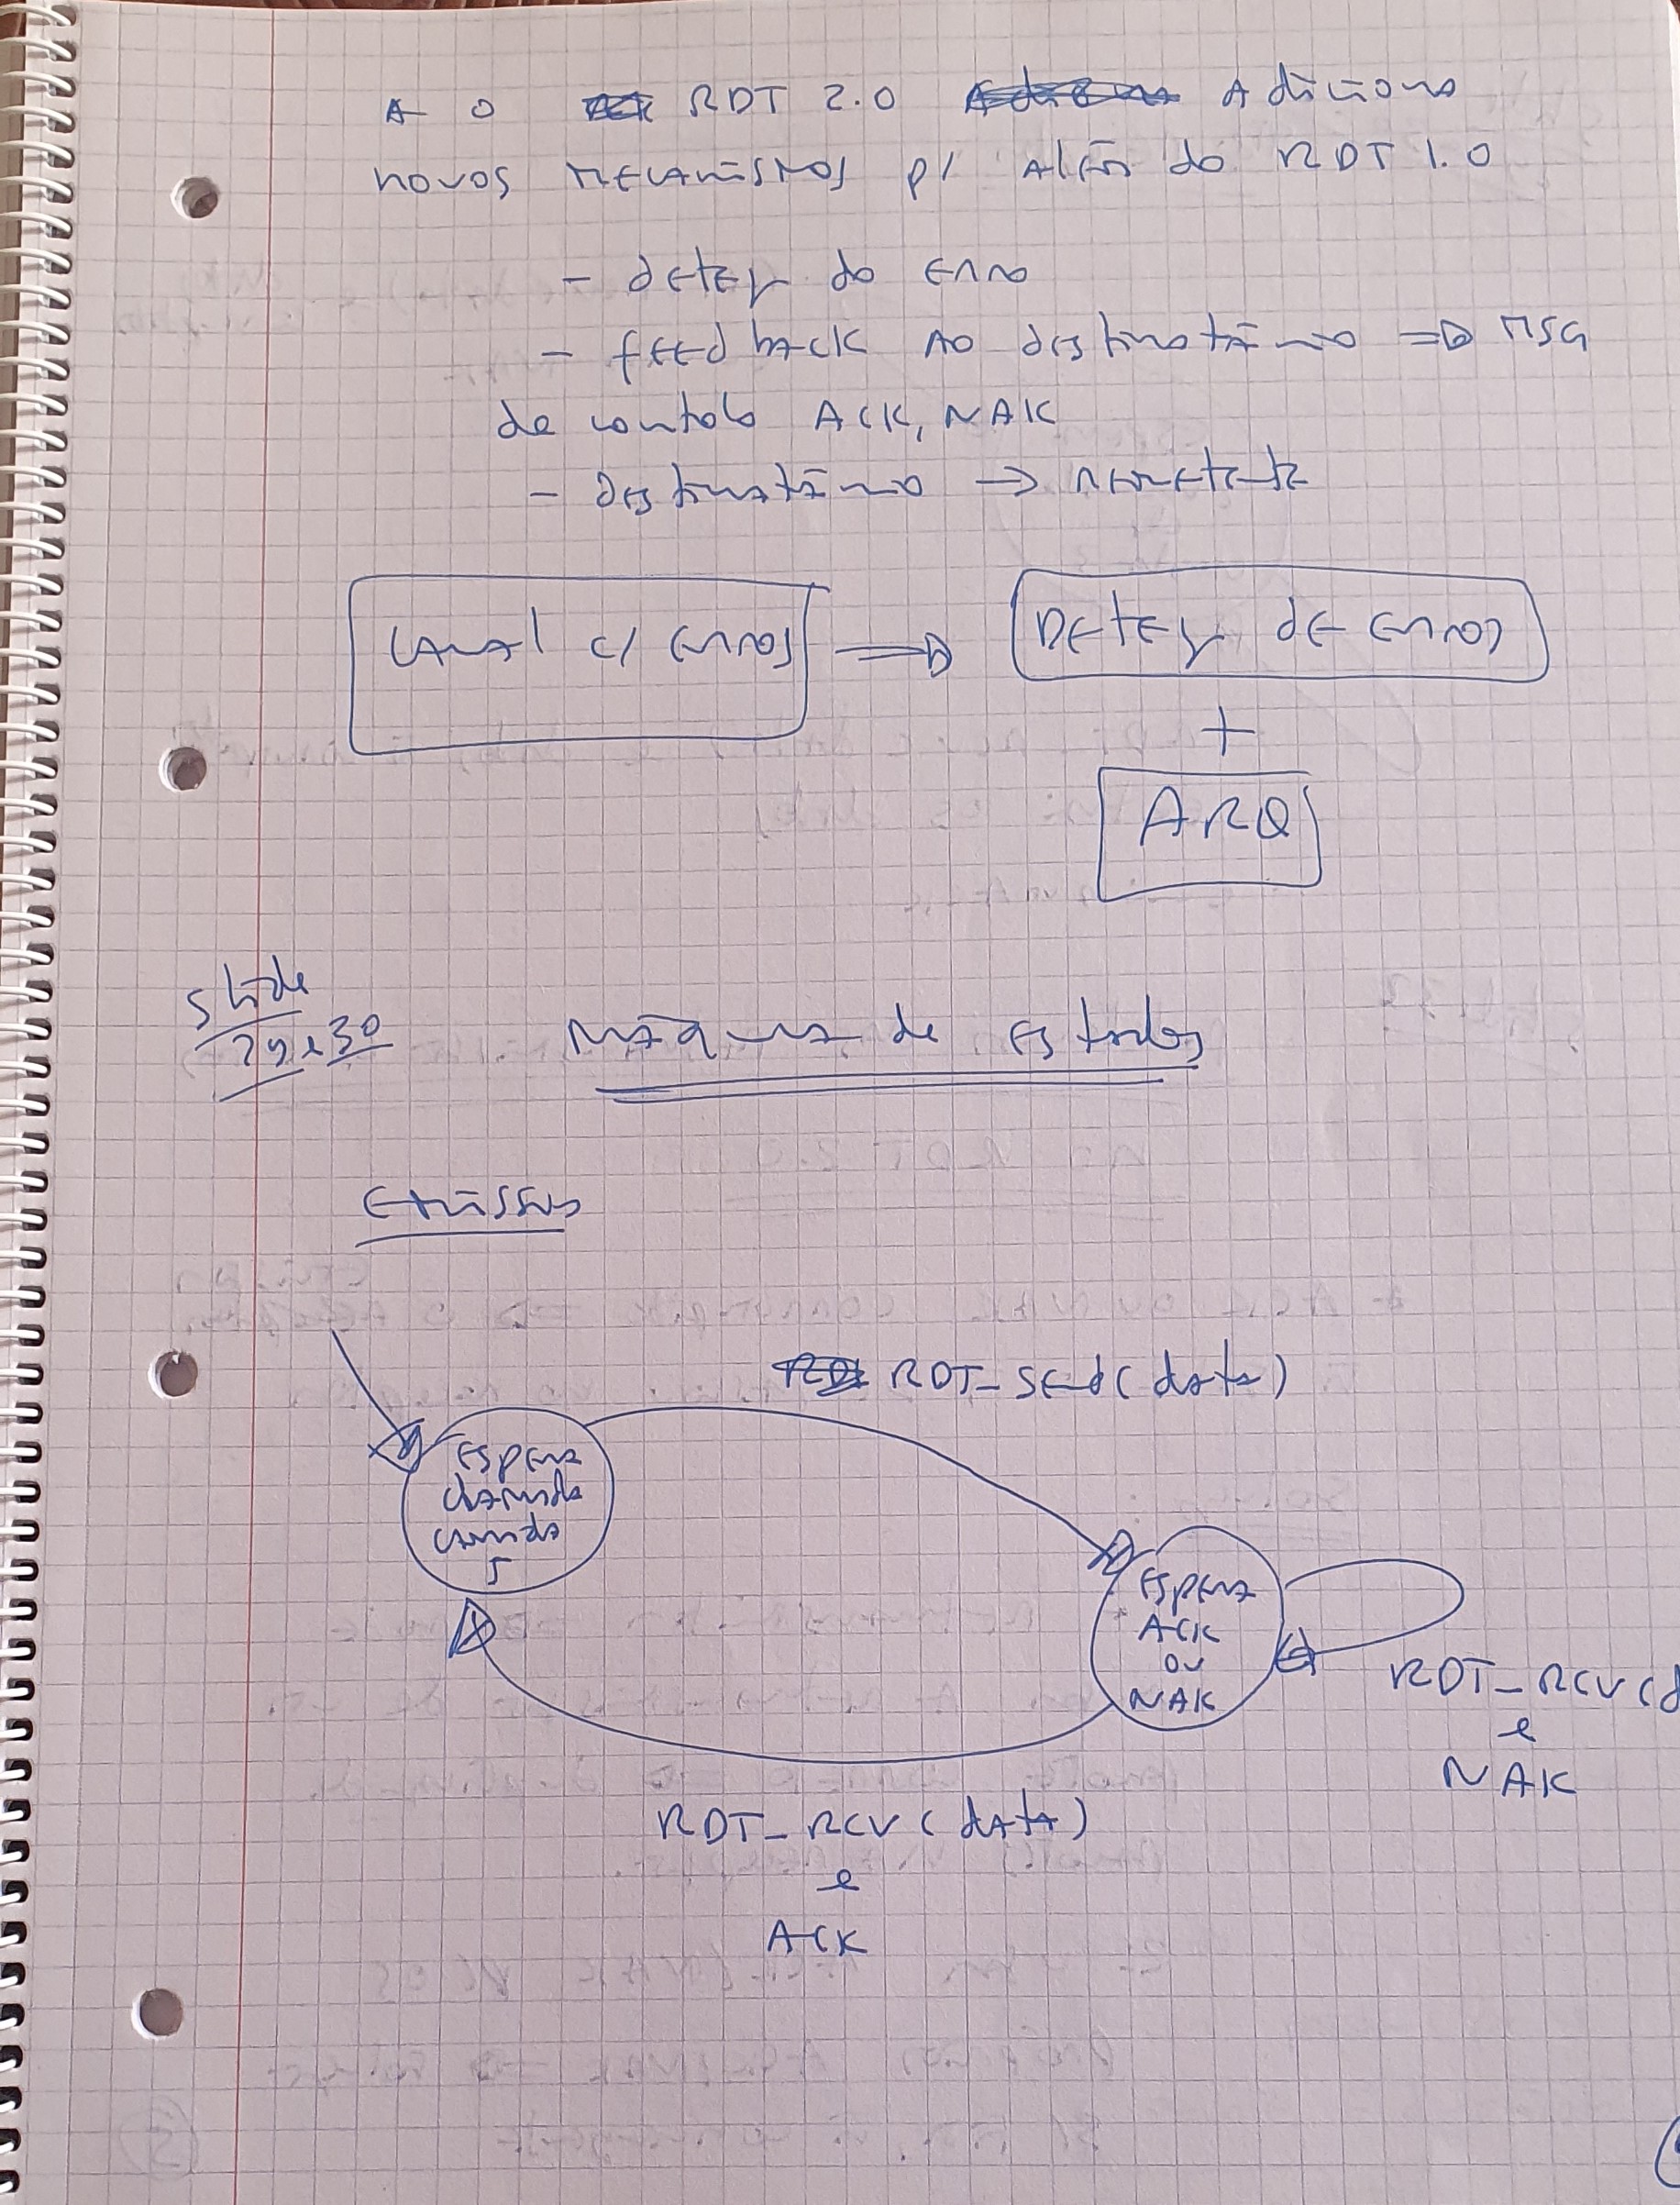 A O RDT 2.0 Adiciona
novos mecanismos p/ além do RDT 1.0
- deteç do erro
- feedback ao destinatário => MSG
de controlo ACK, NAK
- destinatário -> remetente
Canal c/ erros => Deteç de erros
+
ARQ
Slide
29 e 30
Máquina de estados
Emissor
RDT_Send(data)
Espera
chamada
camada
5
Espera
ACK
ou
NAK
RDT_RCV(d
e
NAK
RDT_RCV(data)
e
ACK